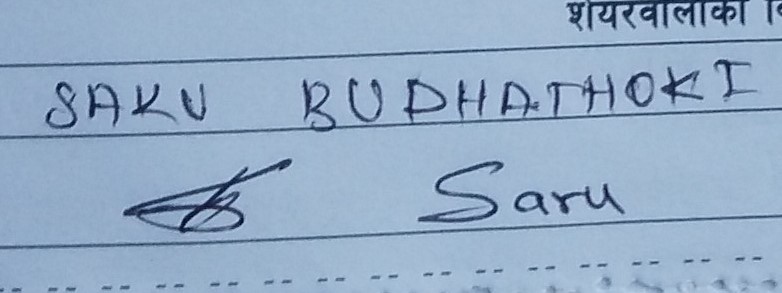 शेयरवालाको
SAKU BUDHATHOKI
Saru